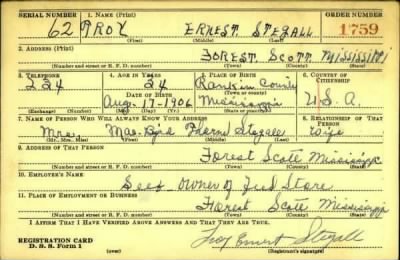 SERIAL NUMBER 1. NAME (Print) ORDER NUMBER
62 TROY ERNEST STEGALL 1759
(First) (Middle) (Last)
2. ADDRESS (Print)
FOREST. SCOTT MISSISSIPPI
(Number and street or R. F. D. number) (Town) (County) (State)
3. TELEPHONE 4. AGE IN YEARS 5. PLACE OF BIRTH 6. COUNTRY OF CITIZENSHIP
224 34 Rankin County
DATE OF BIRTH (Town or county)
Aug. 17-1906 Mississippi U.S.A.
(Exchange) (Number) (Mo.) (Day) (Yr.) (State or country)
7. NAME OF PERSON WHO WILL ALWAYS KNOW YOUR ADDRESS 8. RELATIONSHIP OF THAT PERSON
Mrs. Mae Bird Stegall wife
(Mr., Mrs., Miss) (First) (Middle) (Last)
9. ADDRESS OF THAT PERSON
Forest Scott Mississippi
(Number and street or R. F. D. number) (Town) (County) (State)
10. EMPLOYER'S NAME
Self - owner of Feed Store
11. PLACE OF EMPLOYMENT OR BUSINESS
Forest Scott Mississippi
(Number and street or R. F. D. number) (Town) (County) (State)
I AFFIRM THAT I HAVE VERIFIED ABOVE ANSWERS AND THAT THEY ARE TRUE.
REGISTRATION CARD
D. S. S. Form 1 Troy Ernest Stegall
(Registrant's signature)